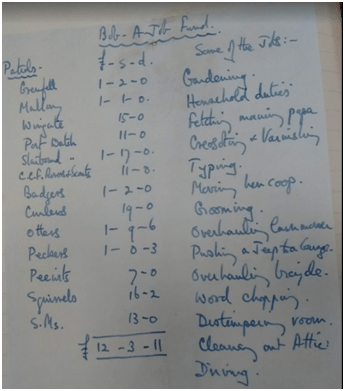 Bob-A-Job Fund.
Patrols - £-s-d. Some of the Jobs:-
Grenfell 1-2-0 Gardening.
Mallory 1-1-0. Household duties.
Wingate 15-0 Fetching morning paper
Port Watch 11-0. Creosoting & Varnishing
Starboard - 1-17-0. Typing.
C.C.F. Rover Scouts 11-0. Moving hen coop.
Badgers 1-2-0 Grooming.
Curlews 19-0 Overhauling Lawnmower
Otters 1-9-6 Pushing a Jeep to Garage.
Peckers 1-0-3 Overhauling bicycle.
Peewits 7-0 Wood chopping.
Squirrels 16-2 Distempering room.
S.Ms. 13-0 Cleaning out Attic.
£ 12-3-11 Driving.